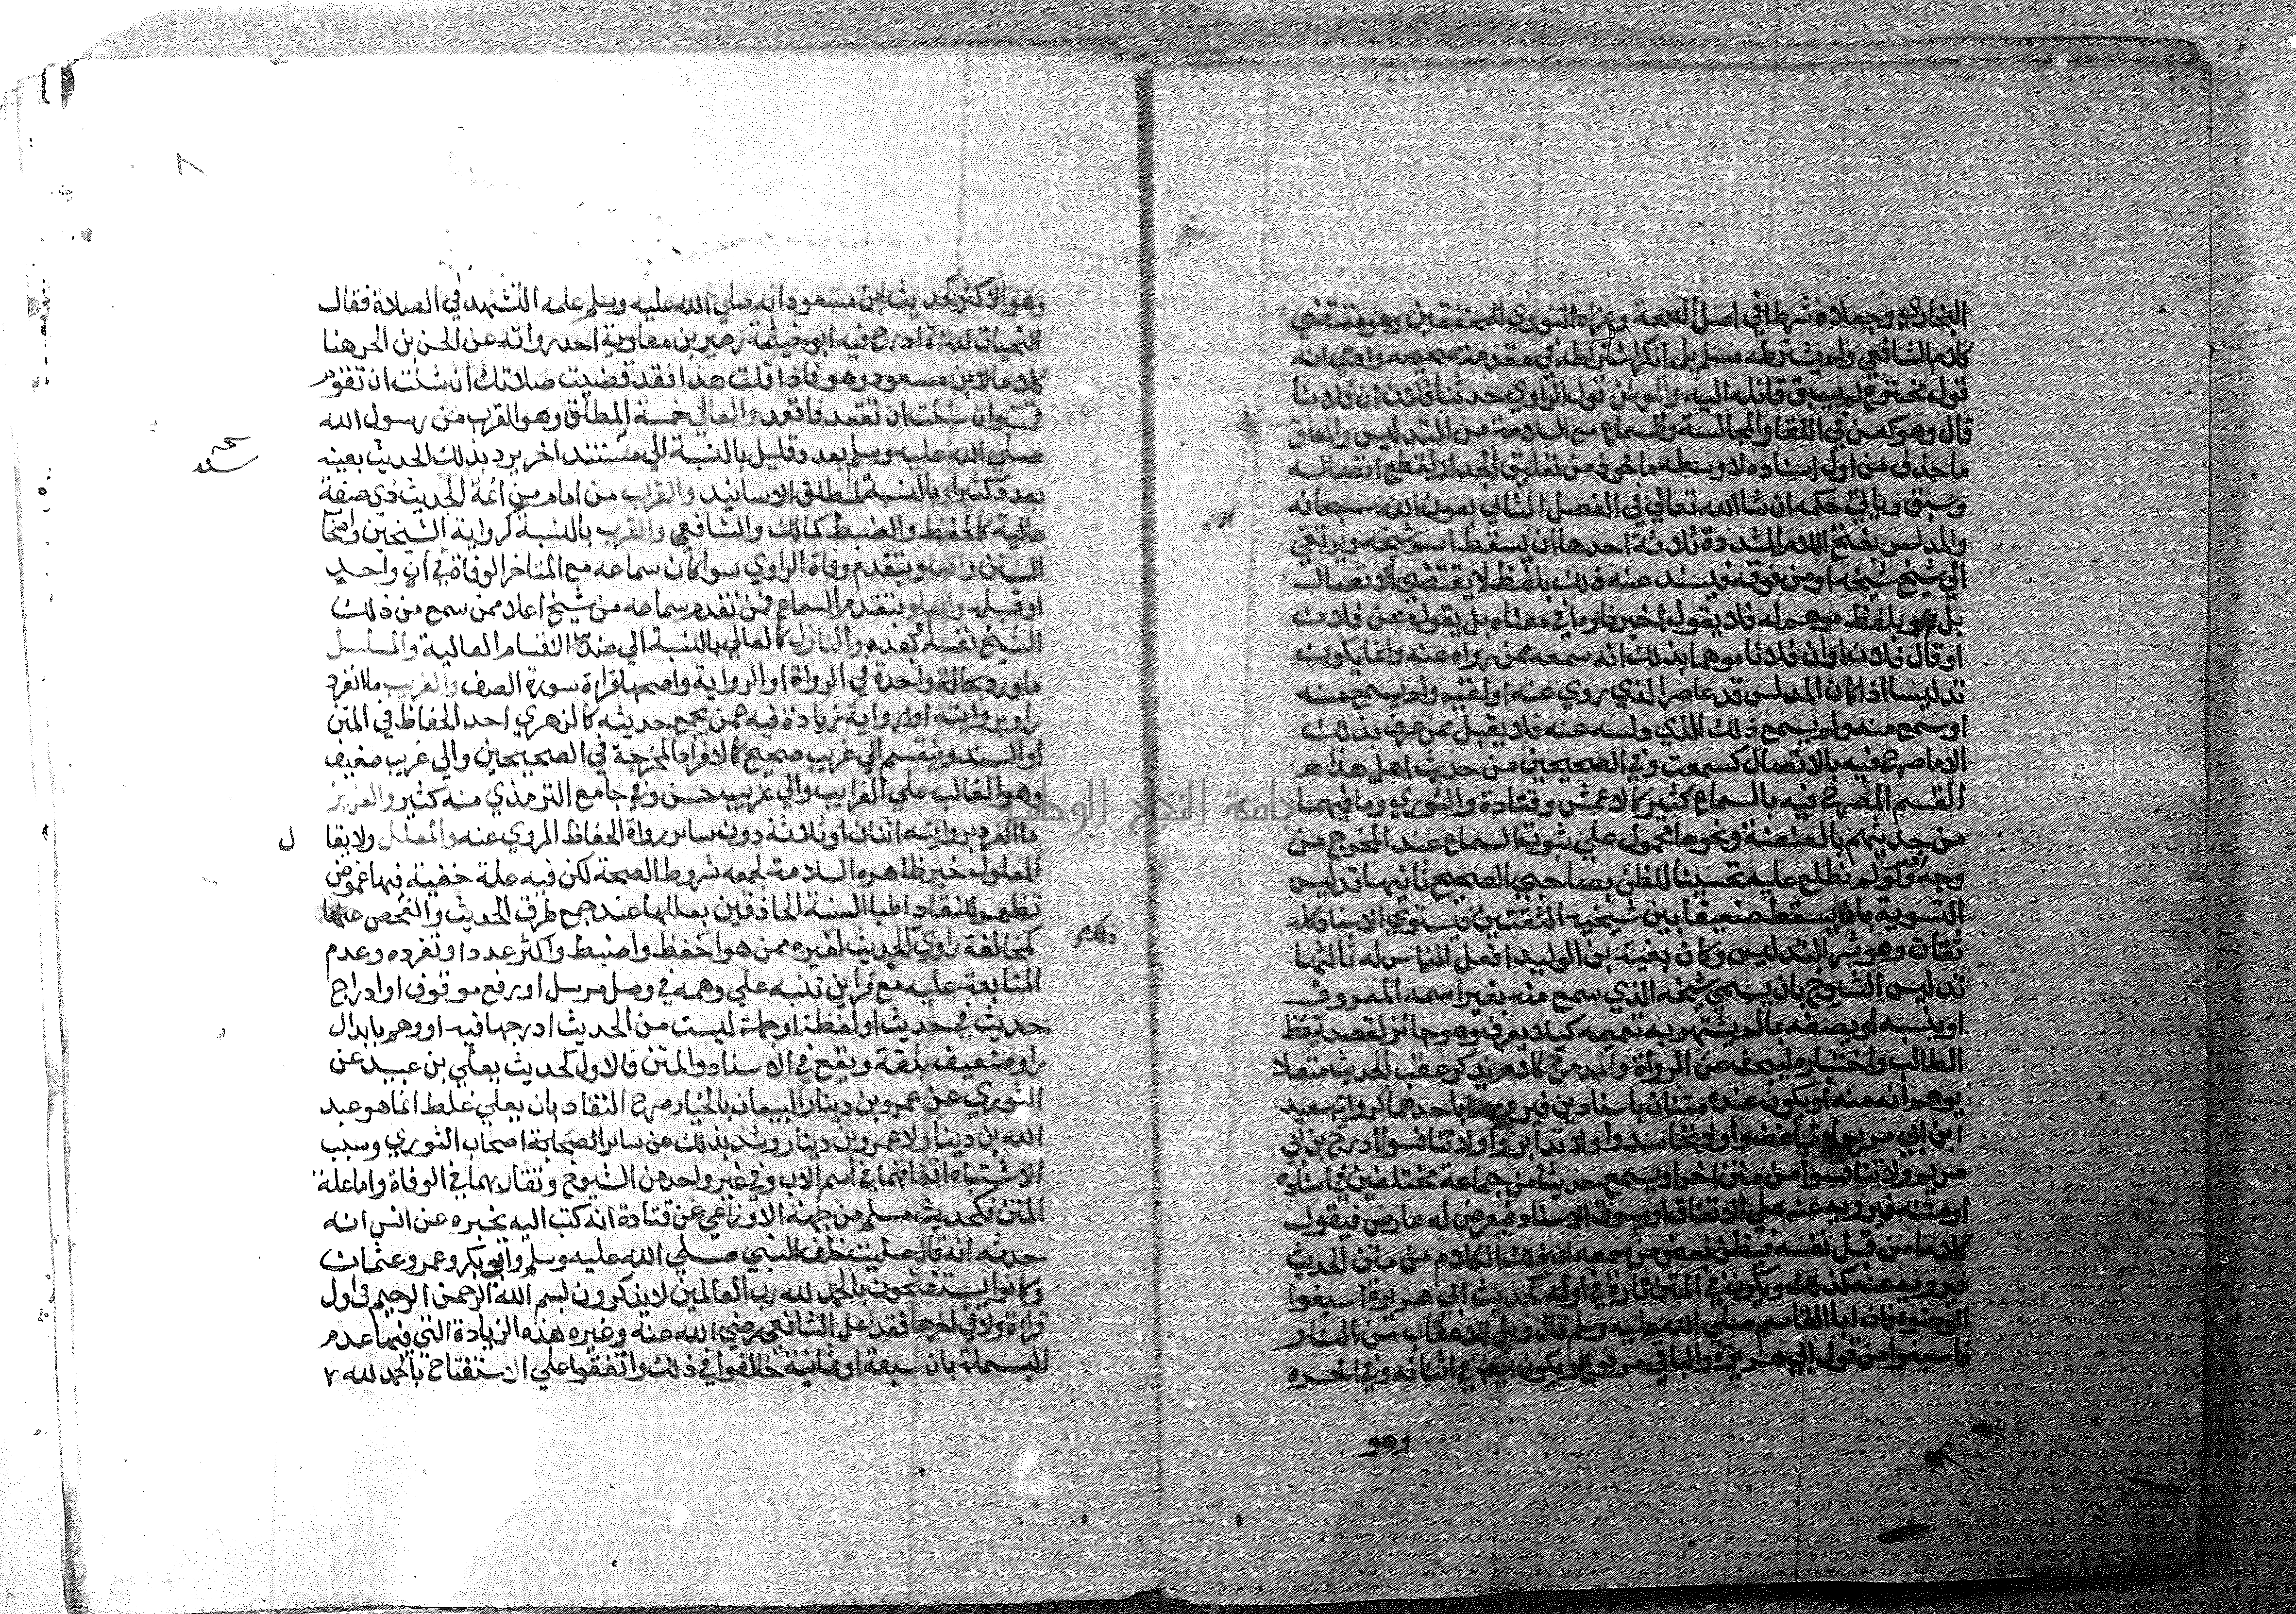 البخاري وجعلاه شرطا في اصل الصحة وعزاه النووي للمحققين وهو مقتضي
كلام الشافعي ولم يشترطه مسلم بل انكر اشتراطه في مقدمة صحيحه وادعي انه
قول مخترع لم يسبق قائله اليه والمؤنن قول الراوي حدثنا فلان ان فلانا
قال وهو كعن في اللقا والمجالسة والسماع مع السلامة من التدليس والمعلق
ما حذف من اول اسناده لا وسطه ماخوذ من تعليق الجدار لقطع اتصاله
وسبق وياتي حكمه ان شا الله تعالي في الفصل الثاني بعون الله سبحانه
والمدلس بفتح اللام المشددة ثلاثة احدها ان يسقط اسم شيخه ويرتقي
الي شيخ شيخه او من فوقه فيسند عنه ذلك بلفظ لا يقتضي الاتصال
بل بلفظ موهم له فلا يقول اخبرنا وما في معناه بل يقول عن فلان
او قال فلان او ان فلانا موهما بذلك انه سمعه ممن رواه عنه وانما يكون
تدليسا اذا كان المدلس قد عاصر الذي روي عنه او لقيه ولم يسمع منه
او سمع منه ولم يسمع ذلك الذي دلسه عنه فلا يقبل ممن عرف بذلك
الا ما صرح فيه بالاتصال كسمعت وفي الصحيحين من حديث اهل هذا
القسم المصرح فيه بالسماع كثير كالاعمش وقتادة والثوري وما فيهما
من حديثهم بالعنعنة ونحوها محمول علي ثبوت السماع عند المخرج من
وجه ولو لم نطلع عليه تحسينا للظن بصاحبي الصحيح ثانيها تدليس
التسوية بان يسقط ضعيفا بين شيخيه الثقتين فيستوي الاسناد كله
ثقات وهو شر التدليس وكان بقية بن الوليد افعل الناس له ثالثها
تدليس الشيوخ بان يسمي شيخه الذي سمع منه بغير اسمه المعروف
او ينسبه او يصفه بما لم يشتهر به تعميمه كيلا يعرف وهو جائز لقصد تيقظ
الطالب واختباره ليبحث عن الرواة والمدرج كلام يذكر عقب الحديث متصلا
يوهم انه منه او يكون عنده متنان باسنادين فيرويهما باحدهما كرواية سعيد
ابن ابي مريم لا تباغضوا ولا تحاسدوا ولا تدابروا ولا تنافسوا ادرج بن ابي
مريم ولا تنافسوا من متن اخر او يسمع حديثا من جماعة مختلفين في اسناده
او متنه فيرويه عنهم علي الاتفاق او يسوق الاسناد فيعرض له عارض فيقول
كلاما من قبل نفسه فيظن بعض من سمعه ان ذلك الكلام من متن الحديث
فيرويه عنه كذلك ويكون في المتن تارة في اوله كحديث ابي هريرة اسبغوا
الوضوء فان ابا القاسم صلي الله عليه وسلم قال ويل للاعقاب من النار
فاسبغوا من قول ابي هريرة والباقي مرفوع ويكون ايضا في اثنائه وفي اخره
وهو
وهو الاكثر كحديث ابن مسعود انه صلي الله عليه وسلم علمه التشهد في الصلاة فقال
التحيات لله ادرج فيه ابو خيثمة زهير بن معاوية احد رواته عن الحسن بن الحر هنا
كلاما لابن مسعود وهو فاذا قلت هذا فقد قضيت صلاتك ان شئت ان تقوم
فقم وان شئت ان تقعد فاقعد والعالي خمسة المطلق وهو القرب من رسول الله
صلي الله عليه وسلم بعدد قليل بالنسبة الي سند اخر يرد بذلك الحديث بعينه
بعدد كثير او بالنسبة لمطلق الاسانيد والقرب من امام من ائمة الحديث ذي صفة
عالية كالحفظ والضبط كمالك والشافعي والقرب بالنسبة كرواية الشيخين واصحاب
السنن والعلو بتقدم وفاة الراوي سوا كان سماعه مع المتاخر الوفاة في ان واحد
او قبله والعلو بتقدم السماع فمن تقدم سماعه من شيخ اعلا ممن سمع من ذلك
الشيخ نفسه بعده والنازل كالعالي بالنسبة الي ضد الاقسام العالية والمسلسل
ما ورد بحالة واحدة في الرواة او الرواية واصحها قراءة سورة الصف والغريب ما انفرد
راو بروايته او برواية زيادة فيه عمن يجمع حديثه كالزهري احد الحفاظ في المتن
او السند وينقسم الي غريب صحيح كالافراد المخرجة في الصحيحين والي غريب ضعيف
وهو الغالب علي الغرايب والي غريب حسن وفي جامع الترمذي منه كثير والعزيز
ما انفرد بروايته اثنان او ثلاثة دون ساير رواة الحفاظ المروي عنه والمعلل ولا يقال
المعلول خبر ظاهره السلامة لجمعه شروط الصحة لكن فيه علة خفية فيها غموض
تظهر للنقاد اطبا السنة الحاذقين بعللها عند جمع طرق الحديث والفحص عنها
كمخالفة راوي الحديث لغيره ممن هو احفظ واضبط واكثر عددا وتفرده وعدم
المتابعة عليه مع قراين تنبه علي وهمه في وصل مرسل او رفع موقوف او ادراج
حديث في حديث او لفظة او جملة ليست من الحديث ادرجها فيه او وهم بابدال
راو ضعيف بثقة ويقع في الاسناد والمتن فالاول كحديث يعلي بن عبيد عن
الثوري عن عمرو بن دينار البيعان بالخيار صرح النقاد بان يعلي غلط انما هو عبد
الله بن دينار لا عمرو بن دينار وشذ بذلك عن ساير اصحاب الثوري وسبب
الاشتباه اتفاقهما في اسم الاب وفي غير واحد من الشيوخ وتقاربهما في الوفاة واما علة
المتن فكحديث مسلم من جهة الاوزاعي عن قتادة انه كتب اليه يخبره عن انس انه
حدثه انه قال صليت خلف النبي صلي الله عليه وسلم وابي بكر وعمر وعثمان
وكانوا يستفتحون بالحمد لله رب العالمين لا يذكرون بسم الله الرحمن الرحيم في اول
قراءة ولا في اخرها فقد اعل الشافعي رضي الله عنه وغيره هذه الزيادة التي فيها عدم
البسملة بان سبعة او ثمانية خالفوا في ذلك واتفقوا علي الاستفتاح بالحمد لله
جامعة النجاح الوطنية